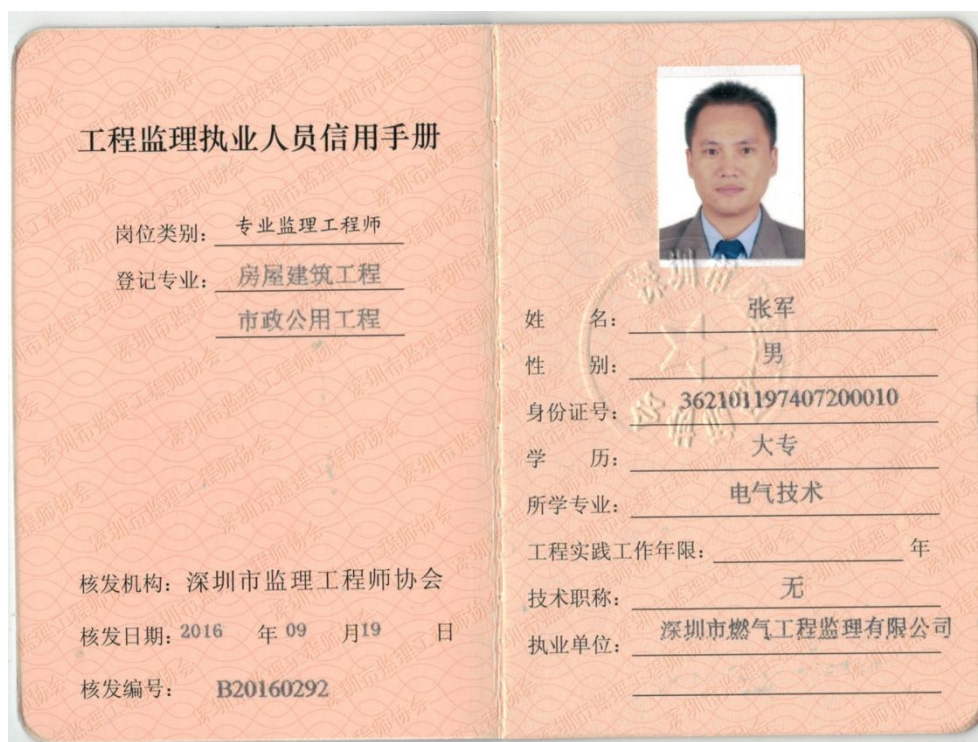 工程监理执业人员信用手册
岗位类别：专业监理工程师
登记专业：房屋建筑工程
市政公用工程
核发机构：深圳市监理工程师协会
核发日期：2016 年 09 月 19 日
核发编号： B20160292
姓 名：张军
性 别：男
身份证号：362101197407200010
学 历：大专
所学专业：电气技术
工程实践工作年限： 年
技术职称：无
执业单位：深圳市燃气工程监理有限公司